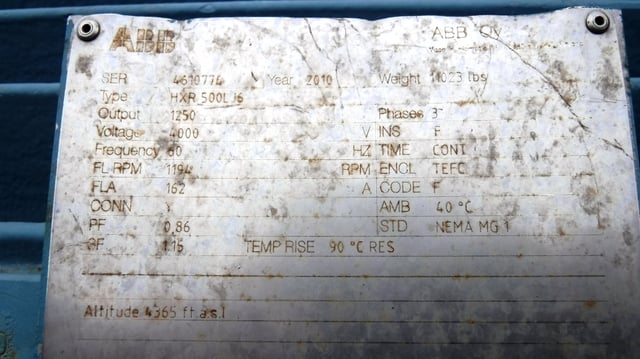 ABB
ABB OY
SER 4610774 Year 2010 Weight 11023 lbs
Type HXR 500L J6
Output 1250 Phases 3
Voltage 4000 V INS F
Frequency 60 HZ TIME CONT
FL RPM 1194 RPM ENCL TEFC
FLA 162 A CODE F
CONN Y AMB 40 °C
PF 0,86 STD NEMA MG 1
SF 1.15 TEMP RISE 90 °C RES
Altitude 4365 ft a.s.l